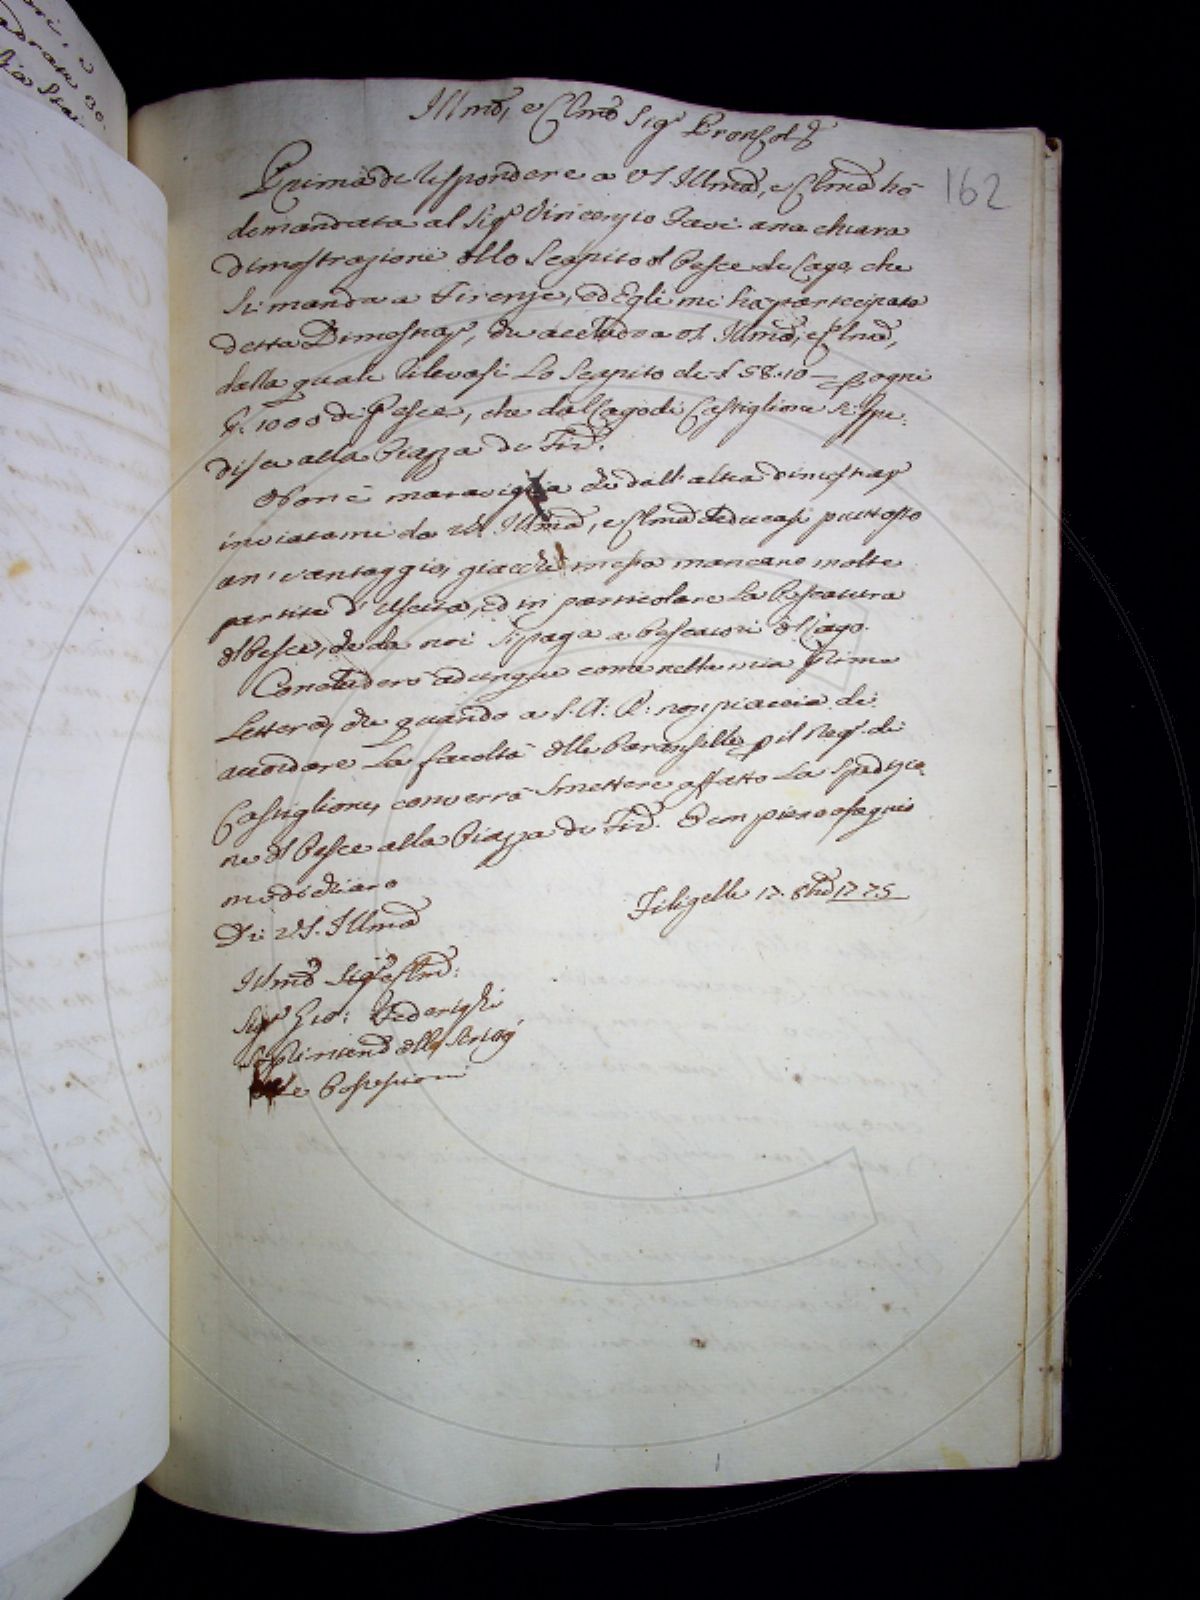 Illmo, e Clmo Sig.
162
Prima di rispondere a VS. Illma, e Clma hò
domandata al Sig.r Vincenzio Favi una chiara
dimostrazione dello Scapito del Pesce di Lago, che
si manda a Firenze, ed Egli mi ha partecipata
detta Dimostraz.e, che accludo a VS. Illma, e Clma,
dalla quale rilevasi Lo Scapito di £ 58.10 — p ogni
£. 1000 di Pesce, che dal Lago di Castiglione si spe:
disce alla Piazza di Fir.e
Non è maraviglia che dall'altra dimostraz.e
inviatami da VS. Illma, e Clma deducasi piuttosto
un' vantaggio, giacchè in essa mancano molte
partite d'Uscita, ed in particolare La Pescatura
del Pesce, che da noi si paga a Pescatori del Lago.
Concluderò adunque come nella mia Prima
Lettera, che quando a S. A: R: non piaccia di
accordare La facoltà delle Paranzelle p il Neg.o di
Castiglione, converrà smettere affatto La Spedizio
ne del Pesce alla Piazza di Fir.e E con pieno ossequio
mi dichiaro
Di VS. Illma
Filigelle 17. 8bre 1775
Illmo Sig.e Clmo:
Sig.r Gio: Federighi
delle Possessioni